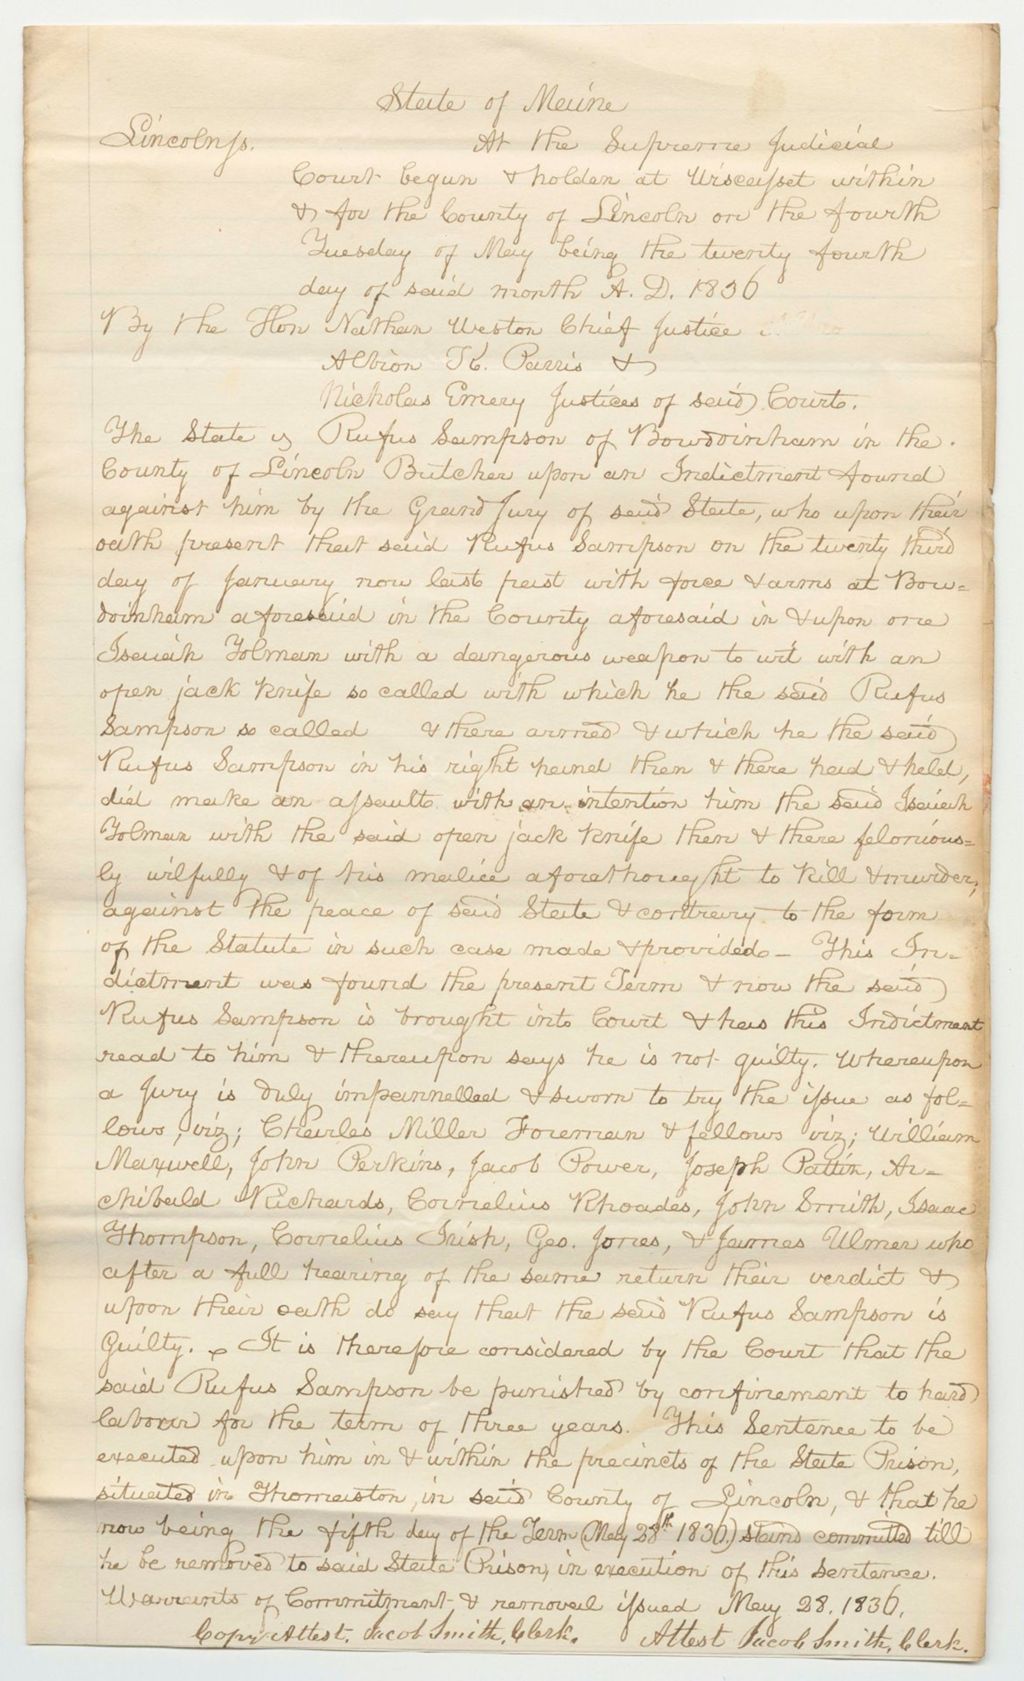 State of Maine
Lincoln ss. At the Supreme Judicial
Court begun & holden at Wiscasset within
& for the County of Lincoln on the fourth
Tuesday of May being the twenty fourth
day of said month A. D. 1836
By the Hon Nathan Weston Chief Justice
Albion K. Parris &
Nicholas Emery Justices of said Court.
The State vs Rufus Sampson of Bowdoinham in the
County of Lincoln Butcher upon an Indictment found
against him by the Grand Jury of said State, who upon their
oath present that said Rufus Sampson on the twenty third
day of January now last past with force & arms at Bow=
doinham aforesaid in the County aforesaid in & upon one
Isaiah Tolman with a dangerous weapon to wit with an
open jack knife so called with which he the said Rufus
Sampson so called & there armed & which he the said
Rufus Sampson in his right hand then & there had & held,
did make an assault with an intention him the said Isaiah
Tolman with the said open jack knife then & there felonious=
ly wilfully & of his malice aforethought to kill & murder,
against the peace of said State & contrary to the form
of the Statute in such case made & provided — This In=
dictment was found the present Term & now the said
Rufus Sampson is brought into Court & has this Indictment
read to him & thereupon says he is not guilty. Whereupon
a Jury is duly impannelled & sworn to try the issue as fol=
lows, viz; Charles Miller Foreman & fellows viz; William
Maxwell, John Perkins, Jacob Power, Joseph Pattin, Ar=
chibald Richards, Cornelius Rhoades, John Smith, Isaac
Thompson, Cornelius Irish, Geo. Jones, & James Ulmer who
after a full hearing of the same return their verdict &
upoon their oath do say that the said Rufus Sampson is
Guilty. It is therefore considered by the Court that the
said Rufus Sampson be punished by confinement to hard
labour for the term of three years. This Sentence to be
executed upon him in & within the precincts of the State Prison,
situated in Thomaston, in said County of Lincoln, & that he
now being the fifth day of the Term (May 28th 1836.) stand committed till
he be removed to said State Prison, in execution of this sentence.
Warrants of Commitment & removal issued May 28. 1836.
Copy Attest. Jacob Smith, Clerk. Attest Jacob Smith, Clerk.